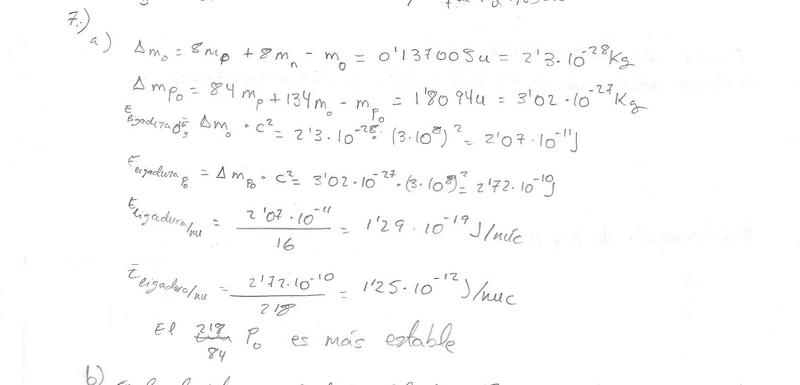 7.)
a) Δm₀ = 8m_p + 8m_n - m₀ = 0'137005u = 2'3·10⁻²⁸Kg
Δm_Po = 84m_p + 134m_o - m_Po = 1'8094u = 3'02·10⁻²⁷Kg
E ligadura O = Δm₀ · c² = 2'3·10⁻²⁸·(3·10⁸)² = 2'07·10⁻¹¹J
E ligadura Po = Δm_Po · c² = 3'02·10⁻²⁷·(3·10⁸)² = 2'72·10⁻¹⁰J
E ligadura/nu = 2'07·10⁻¹¹ / 16 = 1'29·10⁻¹⁹J/nuc
E ligadura/nu = 2'72·10⁻¹⁰ / 218 = 1'25·10⁻¹²J/nuc
El 218/84 Po es más estable
b)